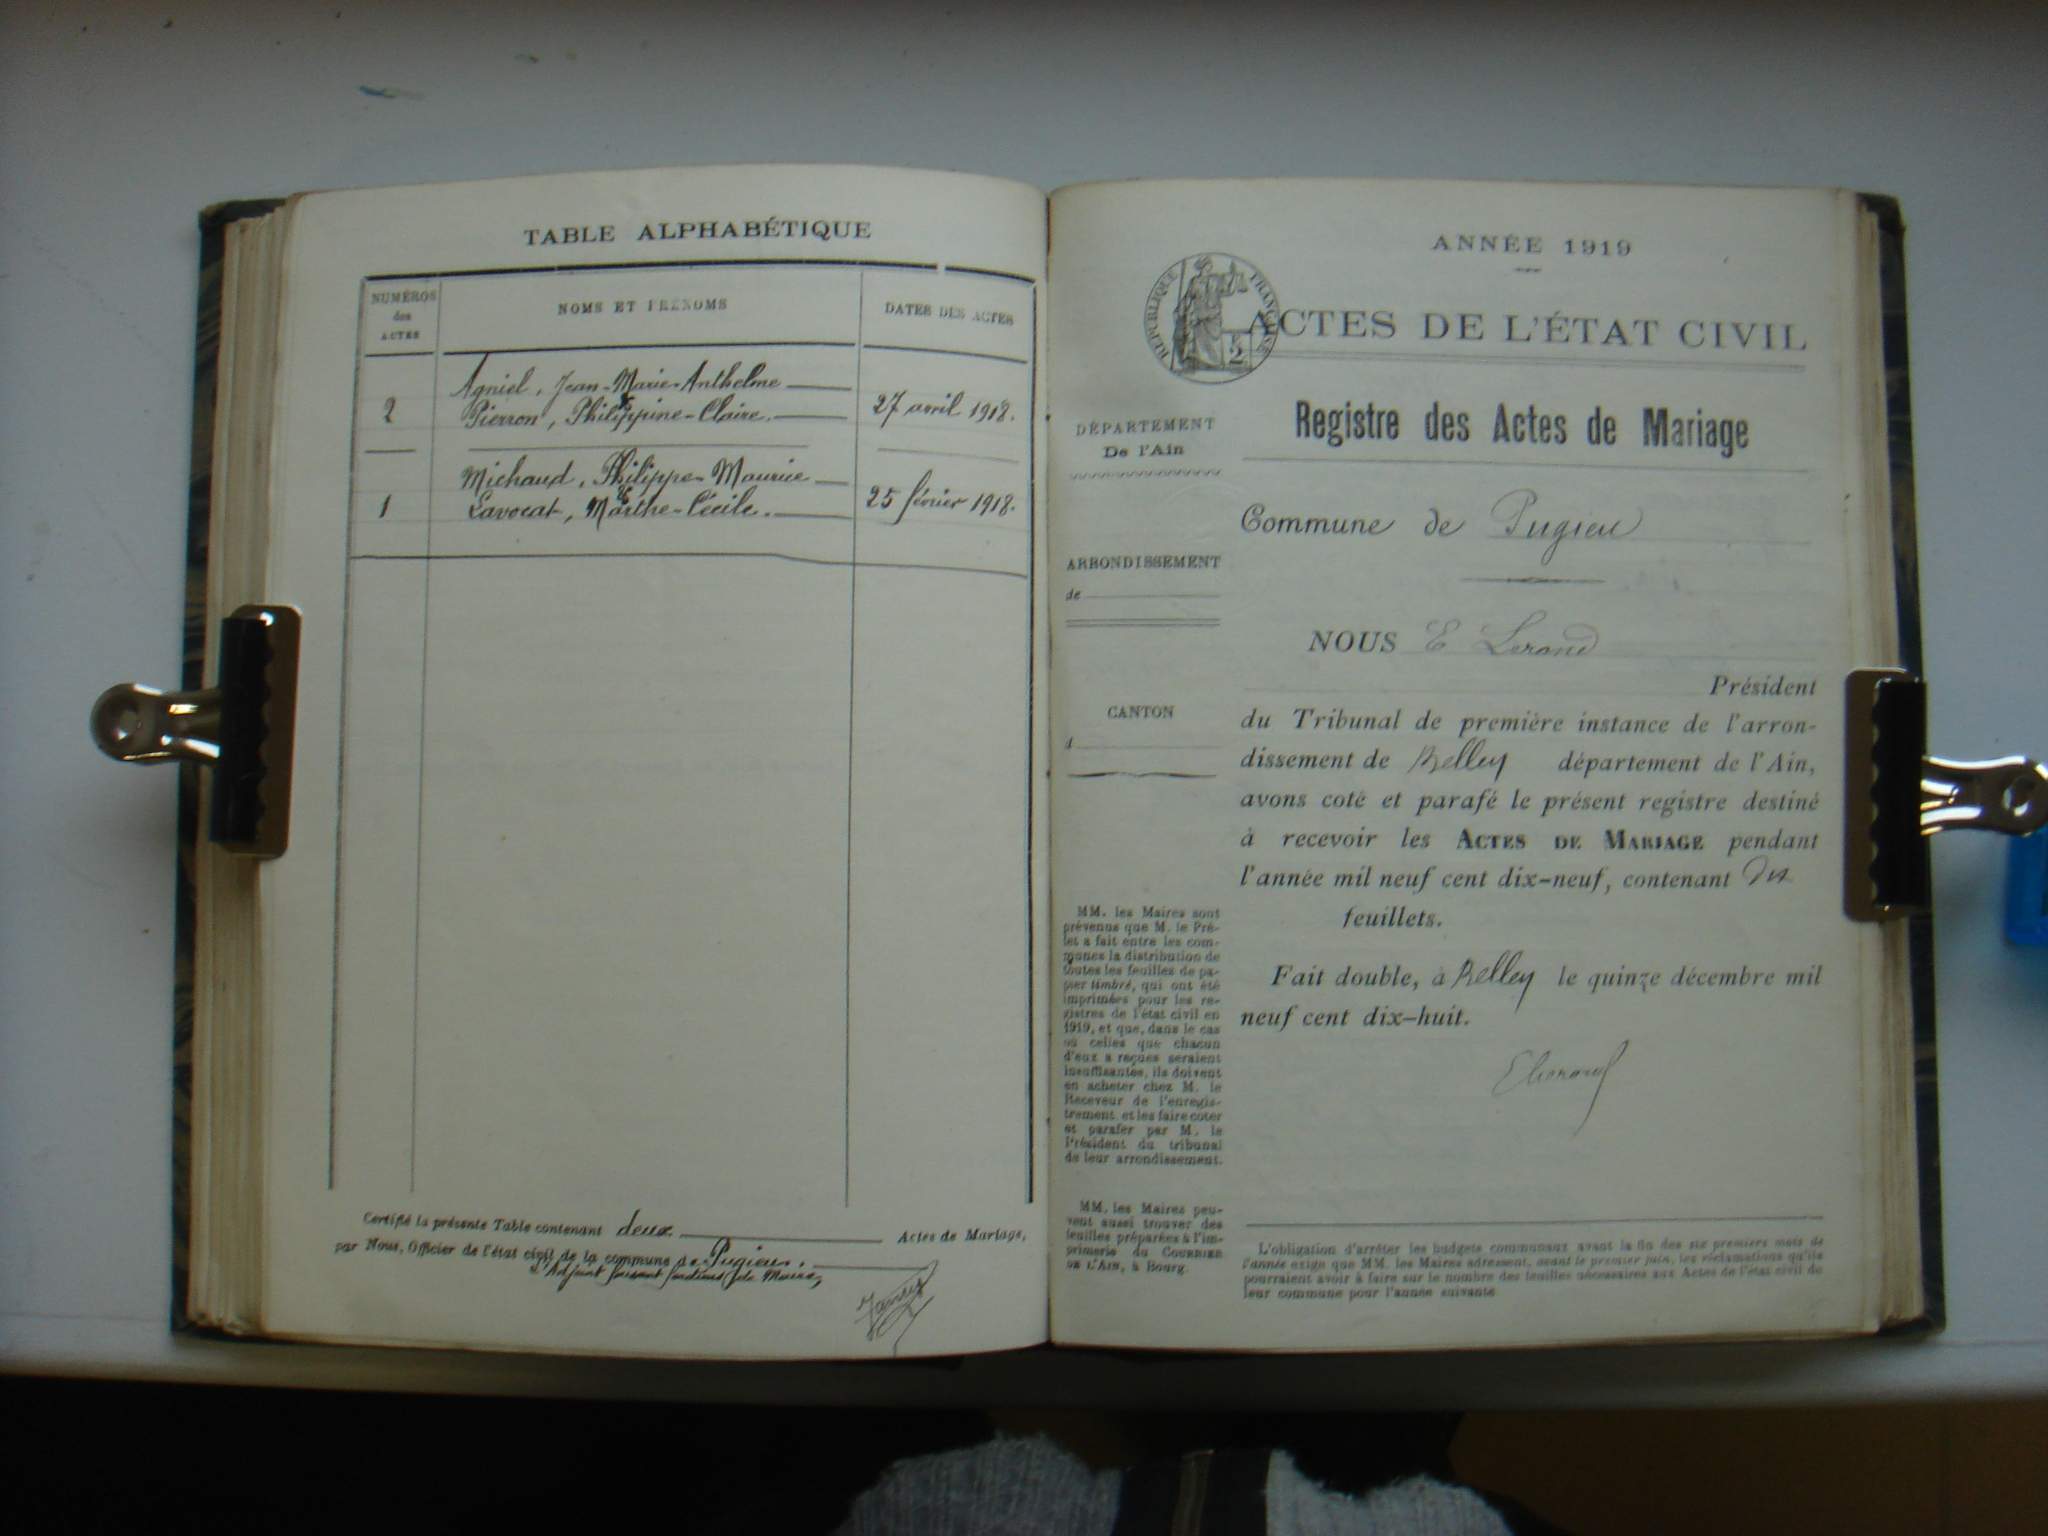 TABLE ALPHABÉTIQUE
NUMÉROS
des
ACTES
NOMS ET PRÉNOMS
DATES DES ACTES
Agniel, Jean-Marie-Anthelme
&
2 Pierron, Philippine-Claire. 27 avril 1918.
Michaud, Philippe-Maurice
&
1 Lavocat, Marthe-Cécile. 25 février 1918.
Certifié la présente Table contenant deux Actes de Mariage,
par Nous, Officier de l'état civil de la commune de Pugieu.
L'Adjoint faisant fonctions de Maire,
ANNÉE 1919
RÉPUBLIQUE FRANÇAISE
ACTES DE L'ÉTAT CIVIL
DÉPARTEMENT
De l'Ain
Registre des Actes de Mariage
Commune de Pugieu
ARRONDISSEMENT
de
NOUS E
CANTON
d
Président
du Tribunal de première instance de l'arron-
dissement de Belley département de l'Ain,
avons coté et parafé le présent registre destiné
à recevoir les ACTES DE MARIAGE pendant
l'année mil neuf cent dix-neuf, contenant dix
feuillets.
Fait double, à Belley le quinze décembre mil
neuf cent dix-huit.
MM. les Maires sont
prévenus que M. le Pré-
fet a fait entre les com-
munes la distribution de
toutes les feuilles de pa-
pier timbré, qui ont été
imprimées pour les re-
gistres de l'état civil en
1919, et que, dans le cas
où celles que chacun
d'eux a reçues seraient
insuffisantes, ils doivent
en acheter chez M. le
Receveur de l'enregis-
trement et les faire coter
et parafer par M. le
Président du tribunal
de leur arrondissement.
MM. les Maires peu-
vent aussi trouver des
feuilles préparées à l'im-
primerie du COURRIER
DE L'AIN, à Bourg.
L'obligation d'arrêter les budgets communaux avant la fin des six premiers mois de
l'année exige que MM. les Maires adressent, avant le premier juin, les réclamations qu'ils
pourraient avoir à faire sur le nombre des feuilles nécessaires aux Actes de l'état civil de
leur commune pour l'année suivante